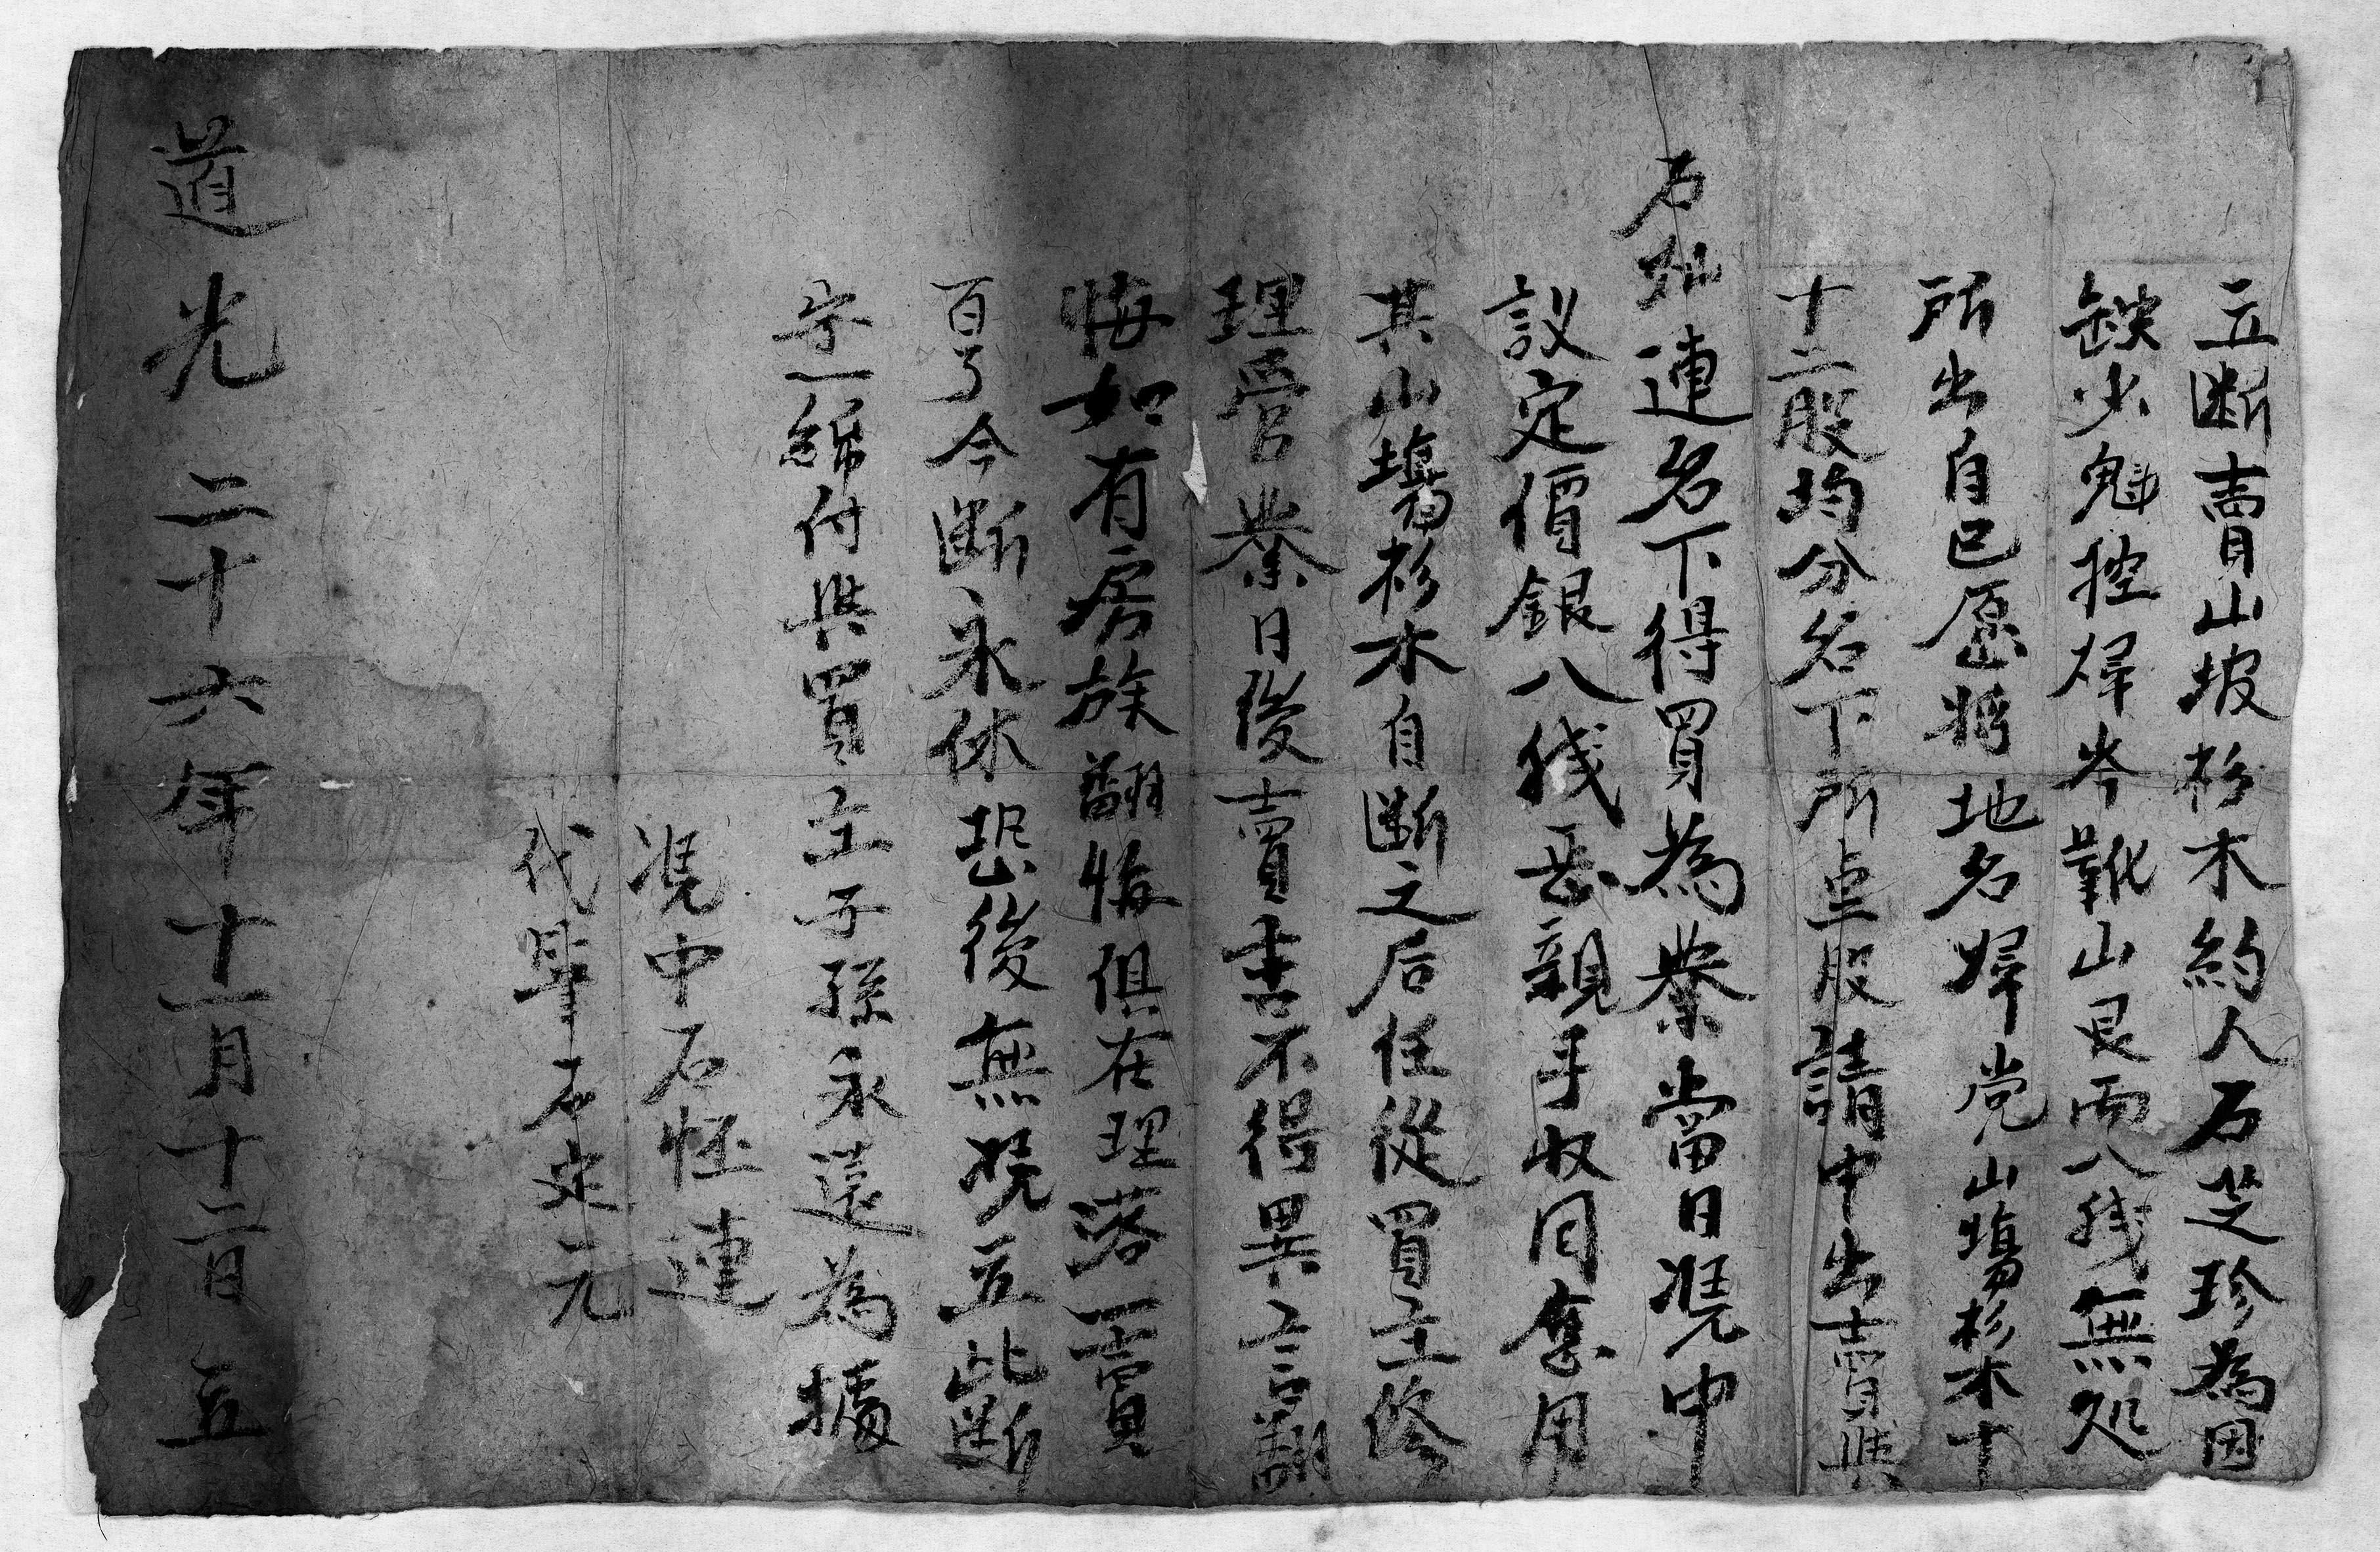 立断賣山坡杉木約人石芝珍為因
缺少魁控焊岑難山艮両八錢無处
所出自己愿將地名婦党山塲杉木十
十二股均分名下所占股請中出賣與
石灿連名下得買為業當日凴中
議定價銀八錢岳親手收同應用
其山塲杉木自断之后任從買主修
理管業日後賣書不得異言翻
悔如有房族翻悔俱在理落一賣
百了今断永休恐後無凴立此断
字一紙付與買主子孫永遠為據
凴中石怌連
代筆石定元
道光二十六年十一月十二日立